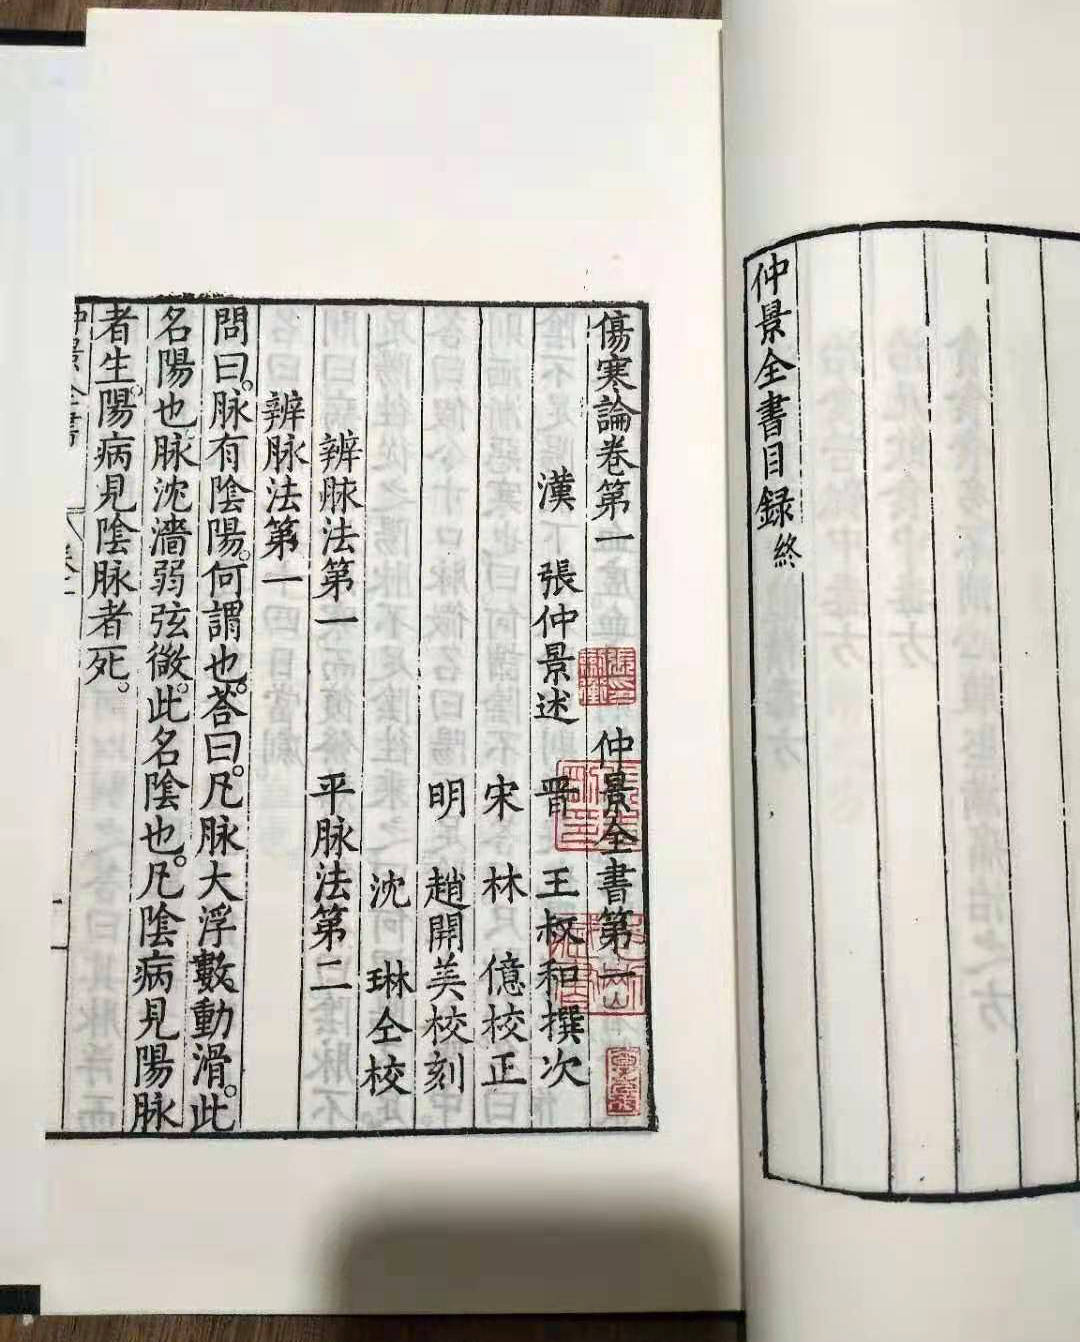 仲景全書目録終
傷寒論卷第一 仲景全書第一
漢 張仲景述 晋 王叔和撰次
宋 林 億校正
明 趙開美校刻
沈 琳仝校
辨脉法第一 平脉法第二
辨脉法第一
問曰。脉有陰陽。何謂也。荅曰。凡脉大浮數動滑。此
名陽也。脉沈濇弱弦微。此名陰也。凡陰病見陽脉
者生。陽病見陰脉者死。
仲景全書